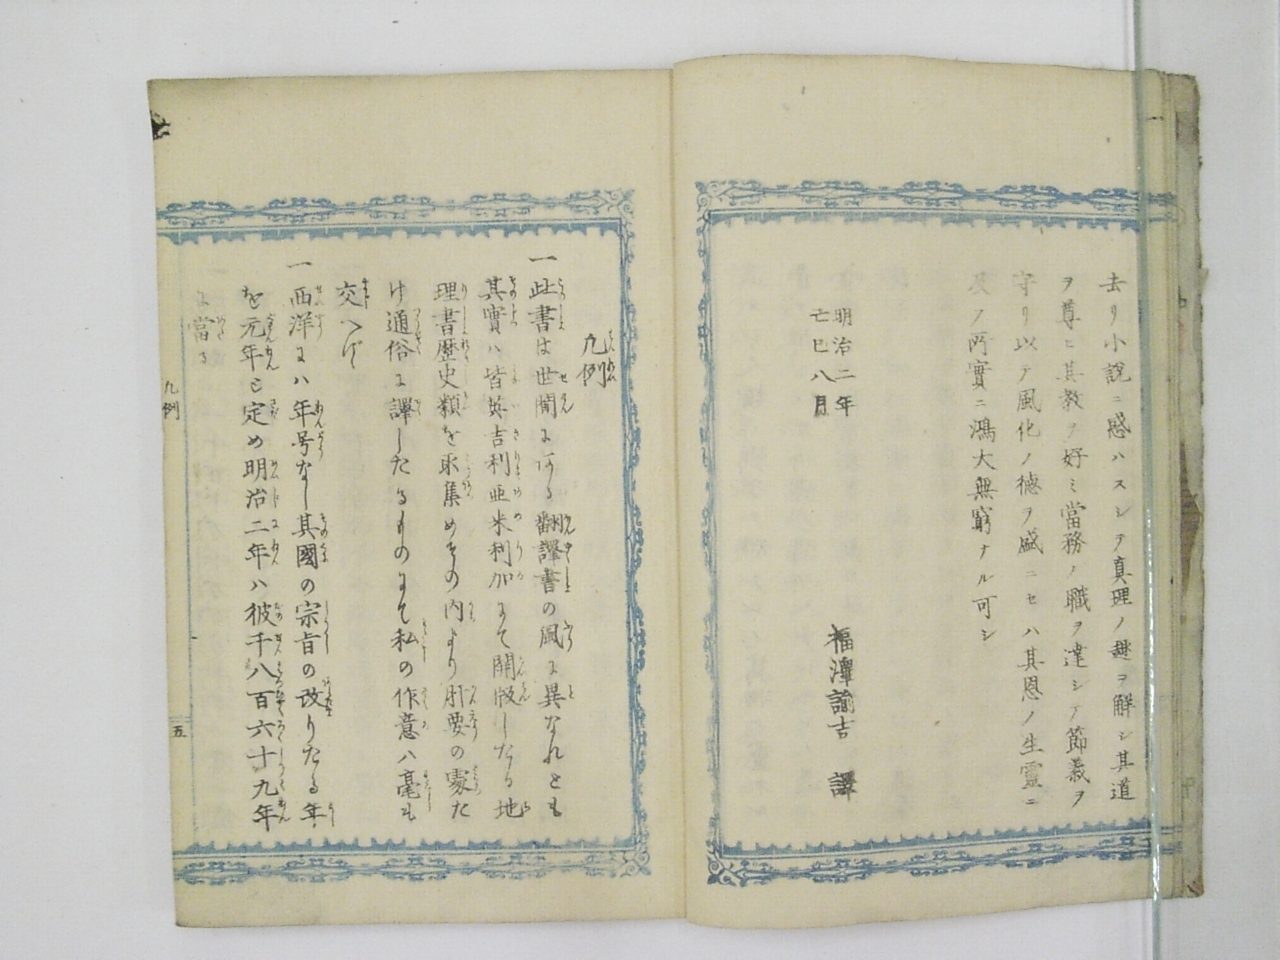 去リ小說ニ惑ハスシテ真理ノ趣ヲ解シ其道
ヲ尊ヒ其教ヲ好ミ當務ノ職ヲ達シテ節義ヲ
守リ以テ風化ノ德ヲ盛ニセハ其恩ノ生靈ニ
及ノ所實ニ鴻大無窮ナル可シ
明治二年
己巳八月
福澤諭吉 譯
凡例
一此書は世間にある翻譯書の風に異なれとも
其實ハ皆英吉利亜米利加にて開版したる地
理書歴史類を取集めその内より肝要の處た
け通俗に譯したるものにて私の作意ハ毫も
交へず
一西洋にハ年号なし其國の宗旨の改りたる年
を元年と定め明治二年ハ彼千八百六十九年
に當る
凡例
五